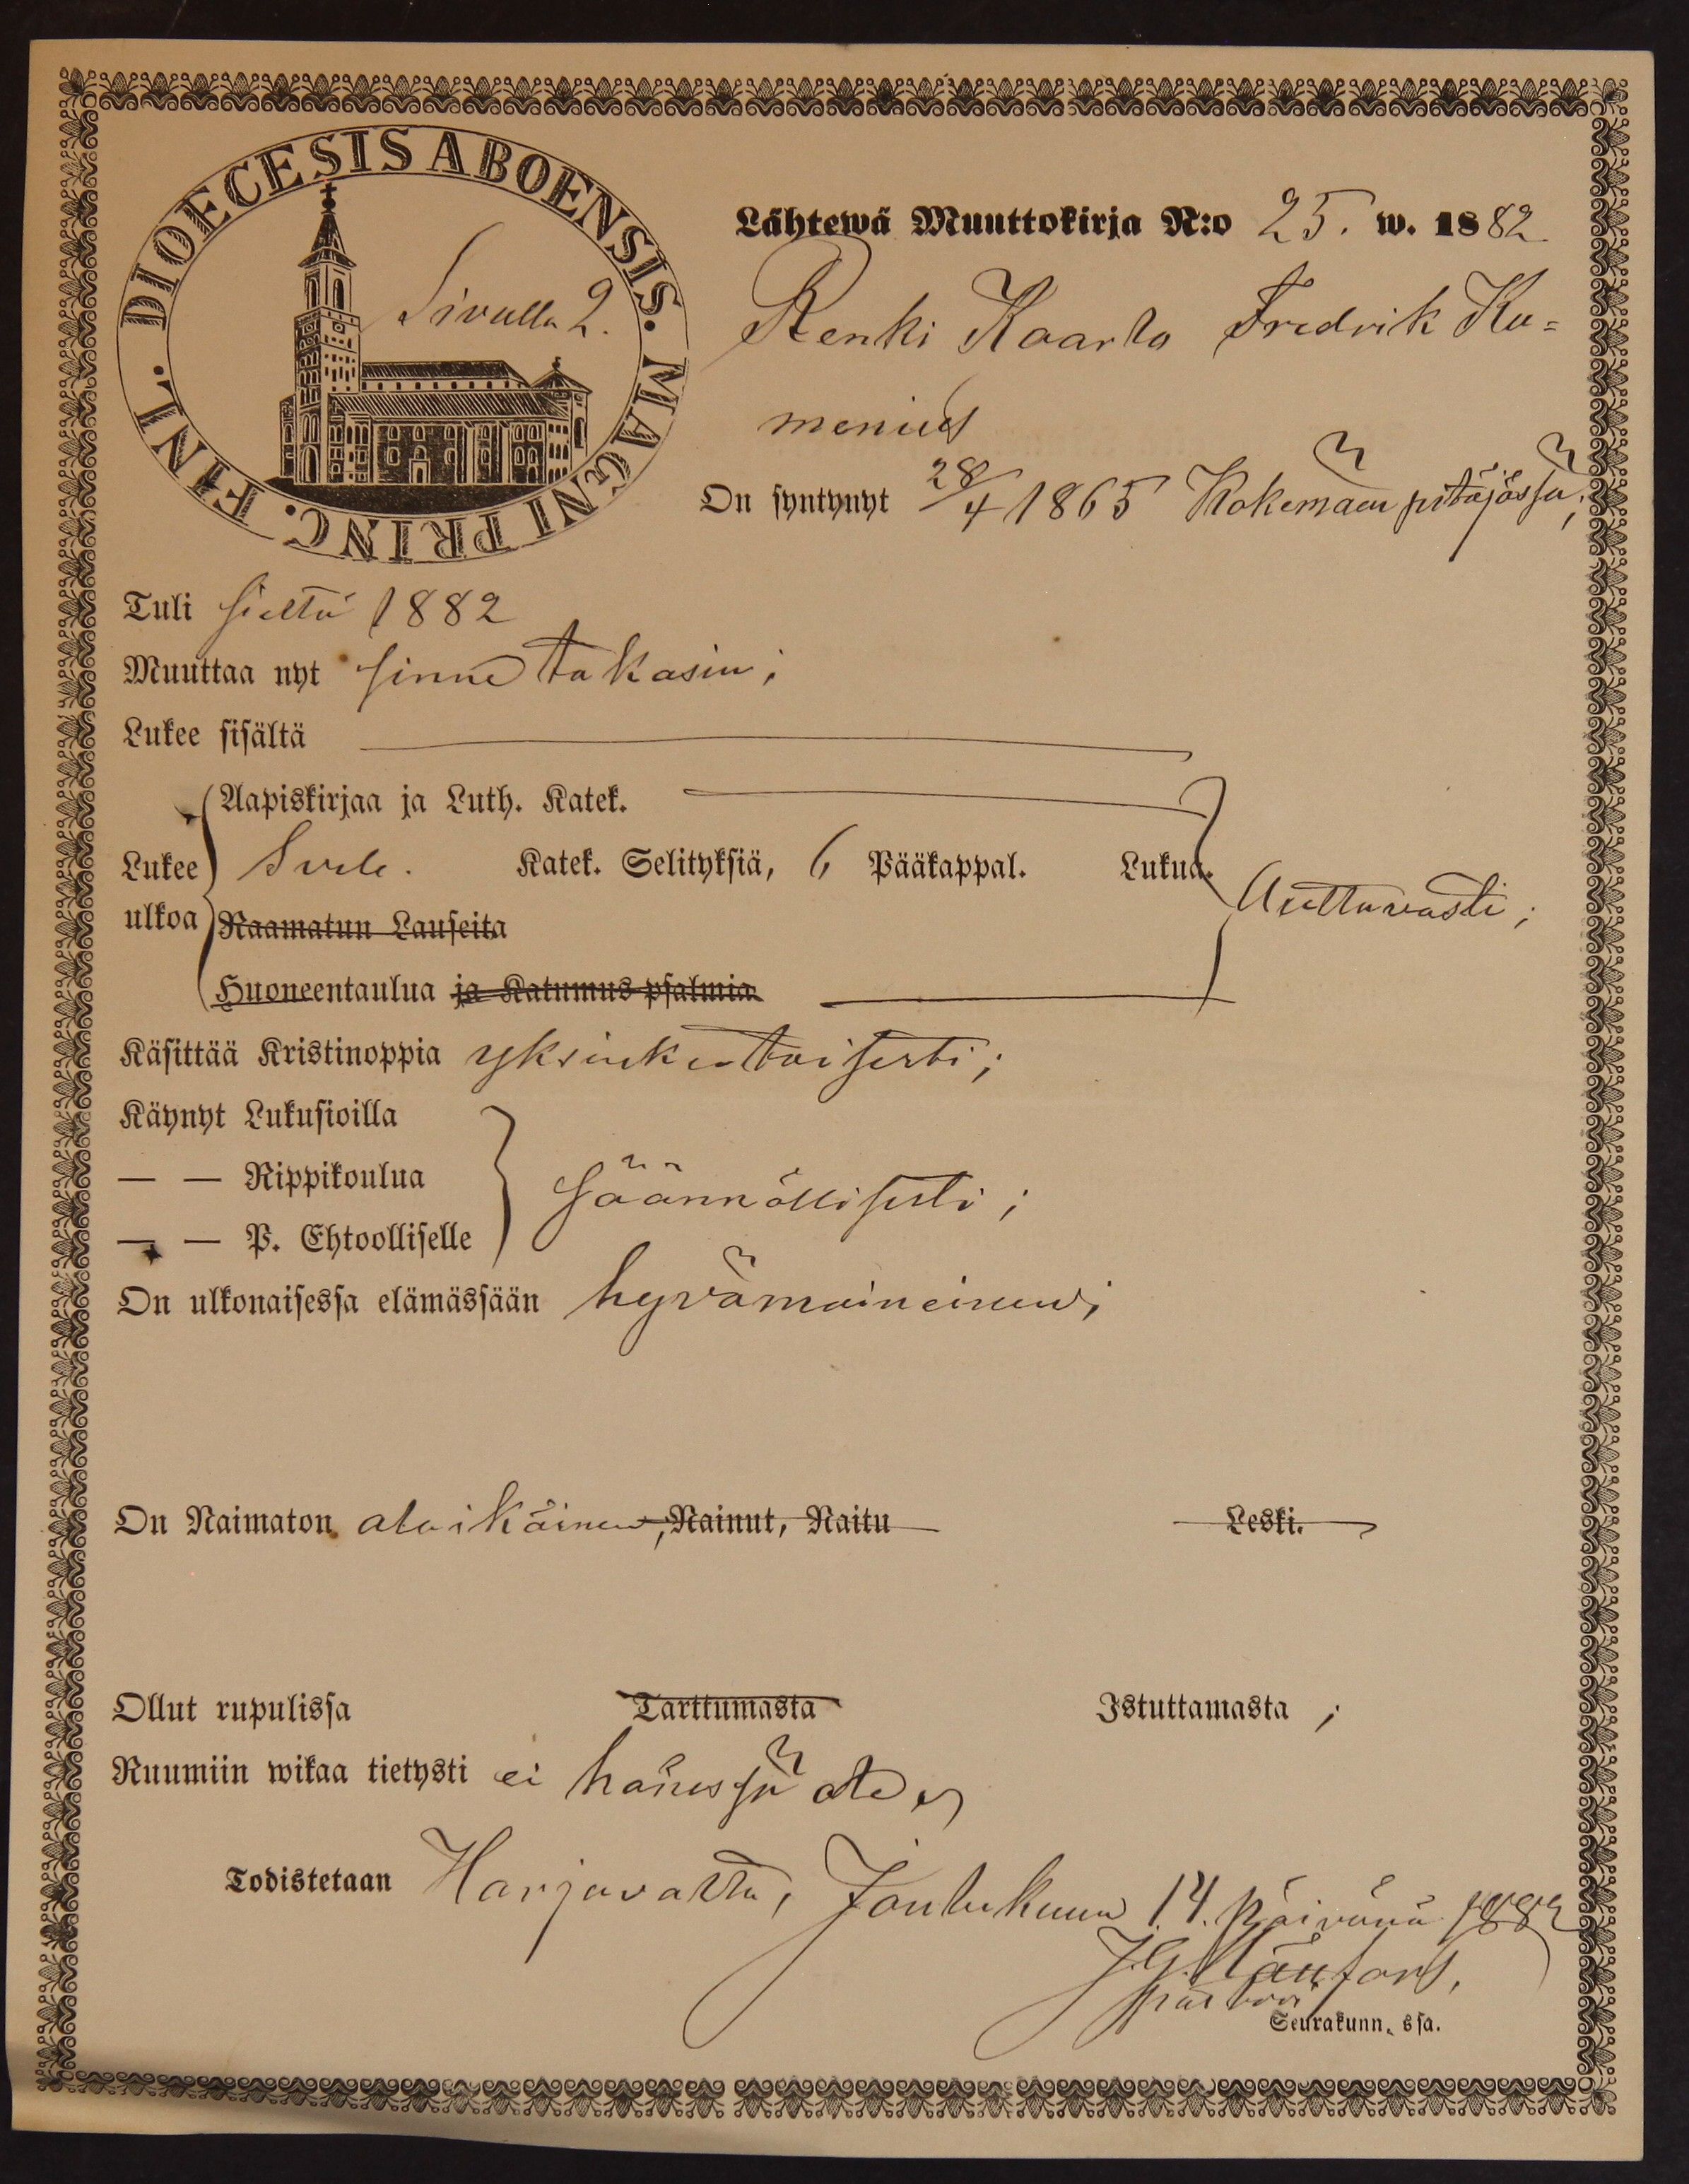 DIOECESIS ABOENSIS. MAGNI PRINC. FINL.
Sivulla 2.
Lähtewä Muuttokirja N:o 25. w. 1882
Renki Kaarlo Fredrik Ku=
menius
On syntynyt 28/4 1865 Kokemäen pitäjässä;
Tuli sieltä 1882
Muuttaa nyt sinne takasin;
Lukee sisältä
Aapiskirjaa ja Luth. Katek.
Lukee Svele. Katek. Selityksiä, 6 Pääkappal. Lukua.
Auttavasti;
ulkoa Raamatun Lauseita
Huoneentaulua ja Katumus psalmia.
Käsittää Kristinoppia yksinkertaisesti;
Käynyt Lukusioilla
— — Rippikoulua
säännöllisesti;
— — P. Ehtoolliselle
On ulkonaisessa elämässään hyvämaineinen;
On Naimaton alaikäinen, Nainut, Naitu Leski.
Ollut rupulissa Tarttumasta Istuttamasta;
Ruumiin wikaa tietysti ei hänessä ole,
Todistetaan Harjavalta, Joulukuun 14. päivänä 1882
Seurakunn. ssa.